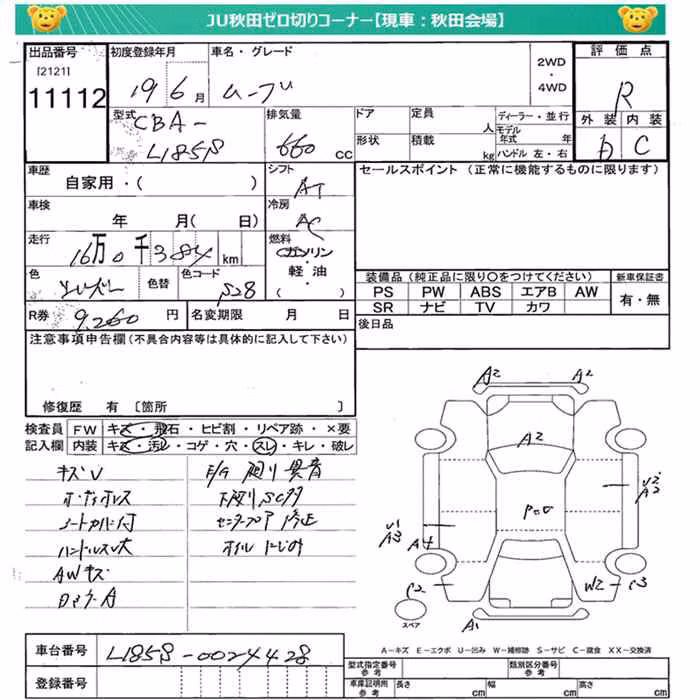 JU秋田ゼロ切りコーナー【現車：秋田会場】
出品番号 初度登録年月 車名・グレード 評価点
[2121] 2WD・4WD
11112 19 6月 ムーブ R
型式 CBA- 排気量 ドア 定員 人 ディーラー・並行 外装 内装
L185S 660 cc 形状 積載 kg モデル年式 年 ハンドル 左・右 C
車歴 シフト セールスポイント（正常に機能するものに限ります）
自家用・（ ） AT
車検 冷房
年 月（ 日） AC
走行 燃料
16万0千384 km ガソリン・軽油・（ ）
色 色替 色コード 装備品（純正品に限り○をつけてください） 新車保証書
S28 PS PW ABS エアB AW 有・無
SR ナビ TV カワ
R券 9,260 円 名変期限 月 日 後日品
注意事項申告欄（不具合内容等は具体的に記入して下さい）
修復歴 有 〔箇所 〕
検査員 FW キズ・飛石・ヒビ割・リペア跡・×要
記入欄 内装 キズ・汚レ・コゲ・穴・スレ・キレ・破レ
キズU E/G 廻り異音
下廻りSCサ
シートカバー付 修正
ハンドルスレ大 オイルにじみ
AWキズ
A2 A2
A2
U2 A2
U1 A3
A4
P2 W2 C3
A1
スペア
A－キズ E－エクボ U－凹み W－補修跡 S－サビ C－腐食 XX－交換済
車台番号 L185S-0024428 型式指定番号 参考 類別区分番号 参考
登録番号 車庫証明用 参考 長さ cm 幅 cm 高さ cm